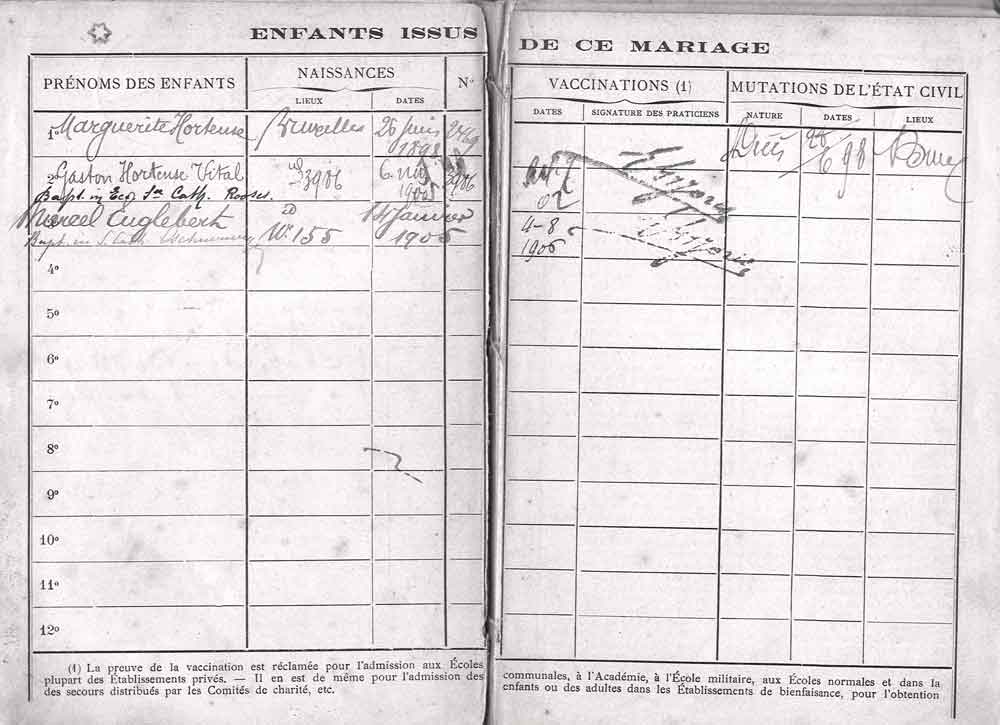 ENFANTS ISSUS DE CE MARIAGE
PRÉNOMS DES ENFANTS NAISSANCES Nº VACCINATIONS (1) MUTATIONS DE L'ÉTAT CIVIL
LIEUX DATES DATES SIGNATURE DES PRATICIENS NATURE DATES LIEUX
1º Marguerite Hortense Bruxelles 26 juin 1898 2469 28/6 98
2º Gaston Hortense Vital 3906 6 1902 3906 02
Bapt. in Ecc. Sta Cath. Rooses.
Marcel Englebert Wº 155 14 janvier 1905 4-8 1906
Bapt. in S. Cath.
4º
5º
6º
7º
8º
9º
10º
11º
12º
(1) La preuve de la vaccination est réclamée pour l'admission aux Écoles communales, à l'Académie, à l'École militaire, aux Écoles normales et dans la
plupart des Établissements privés. — Il en est de même pour l'admission des enfants ou des adultes dans les Établissements de bienfaisance, pour l'obtention
des secours distribués par les Comités de charité, etc.